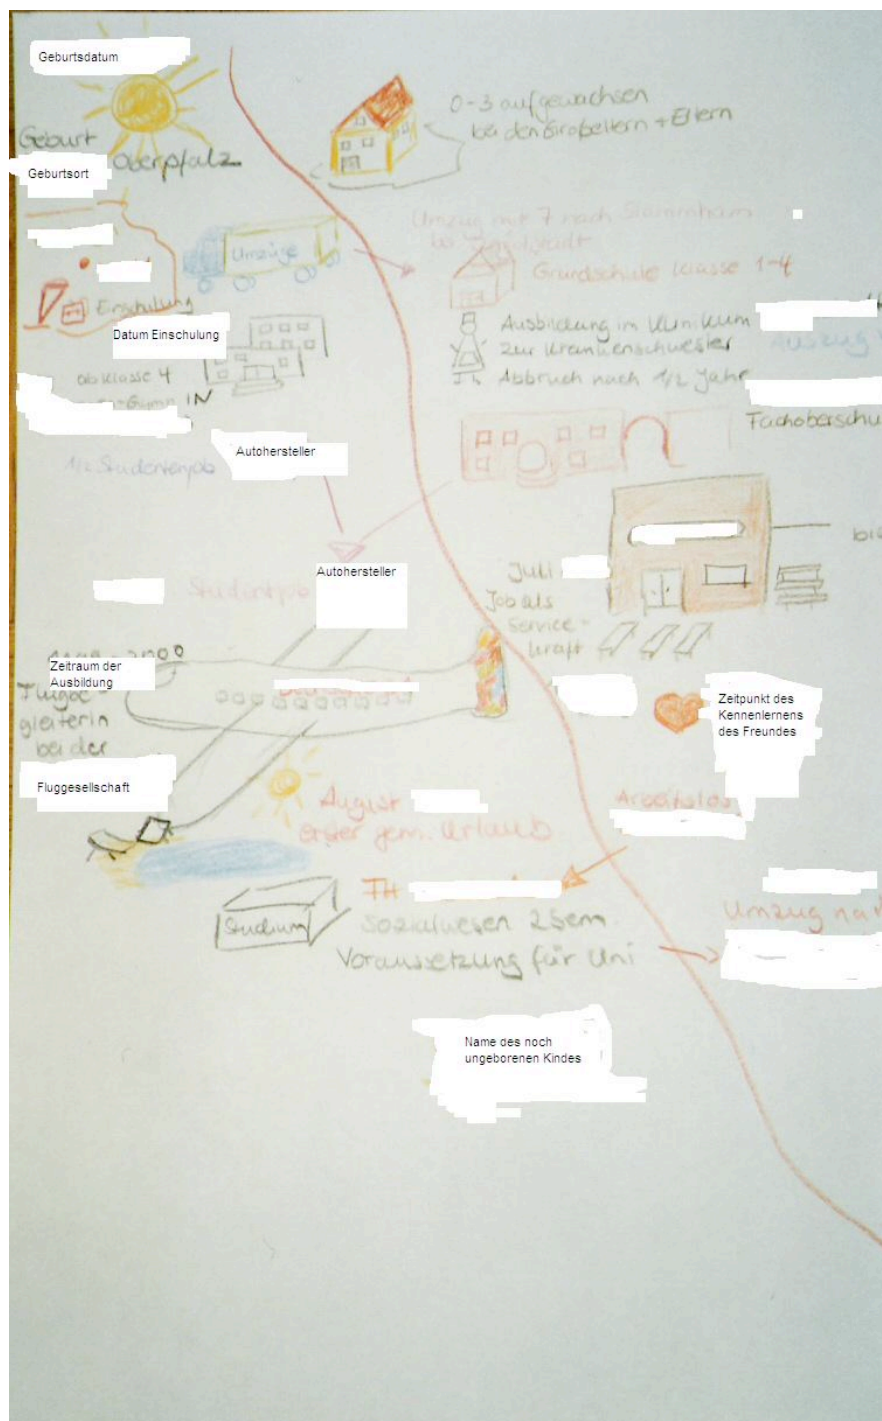 Geburtsdatum
0-3 aufgewachsen
bei den Großeltern + Eltern
Geburt
Oberpfalz
Geburtsort
Umzug mit 7 nach Stammham
bei Ingolstadt
Umzüge
Grundschule Klasse 1-4
Einschulung
Datum Einschulung
Ausbildung im Klinikum
zur Krankenschwester
Abbruch nach 1/2 Jahr
Auszug
ab Klasse 4
IN
Fachoberschu
1/2 Studentenjob
Autohersteller
Autohersteller
Studentenjob
Juli
Job als
Service-
kraft
Zeitraum der
Ausbildung
Flugbe-
gleiterin
bei der
Fluggesellschaft
Zeitpunkt des
Kennenlernens
des Freundes
August
erster gem. Urlaub
Arbeitslos
FH
Studium
Sozialwesen 2 Sem.
Voraussetzung für Uni
Umzug nach
Name des noch
ungeborenen Kindes